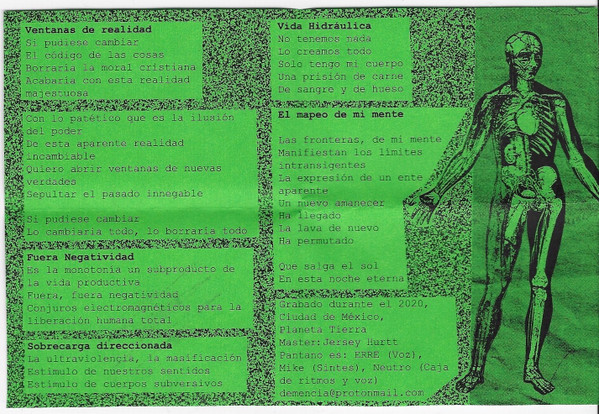 Ventanas de realidad
Si pudiese cambiar
El código de las cosas
Borraría la moral cristiana
Acabaría con esta realidad
majestuosa
Con lo patético que es la ilusión
del poder
De esta aparente realidad
incambiable
Quiero abrir ventanas de nuevas
verdades
Sepultar el pasado innegable
Si pudiese cambiar
Lo cambiaría todo, lo borraría todo
Fuera Negatividad
Es la monotonía un subproducto de
la vida productiva
Fuera, fuera negatividad
Conjuros electromagnéticos para la
liberación humana total
Sobrecarga direccionada
La ultraviolencia, la masificación
Estímulo de nuestros sentidos
Estímulo de cuerpos subversivos
Vida Hidráulica
No tenemos nada
Lo creamos todo
Solo tengo mi cuerpo
Una prisión de carne
De sangre y de hueso
El mapeo de mi mente
Las fronteras, de mi mente
Manifiestan los límites
intransigentes
La expresión de un ente
aparente
Un nuevo amanecer
Ha llegado
La lava de nuevo
Ha permutado
Que salga el sol
En esta noche eterna
Grabado durante el 2020,
Ciudad de México,
Planeta Tierra
Master:Jersey Hurtt
Pantano es: ERRE (Voz),
Mike (Sintes), Neutro (Caja
de ritmos y voz)
demencia@protonmail.com